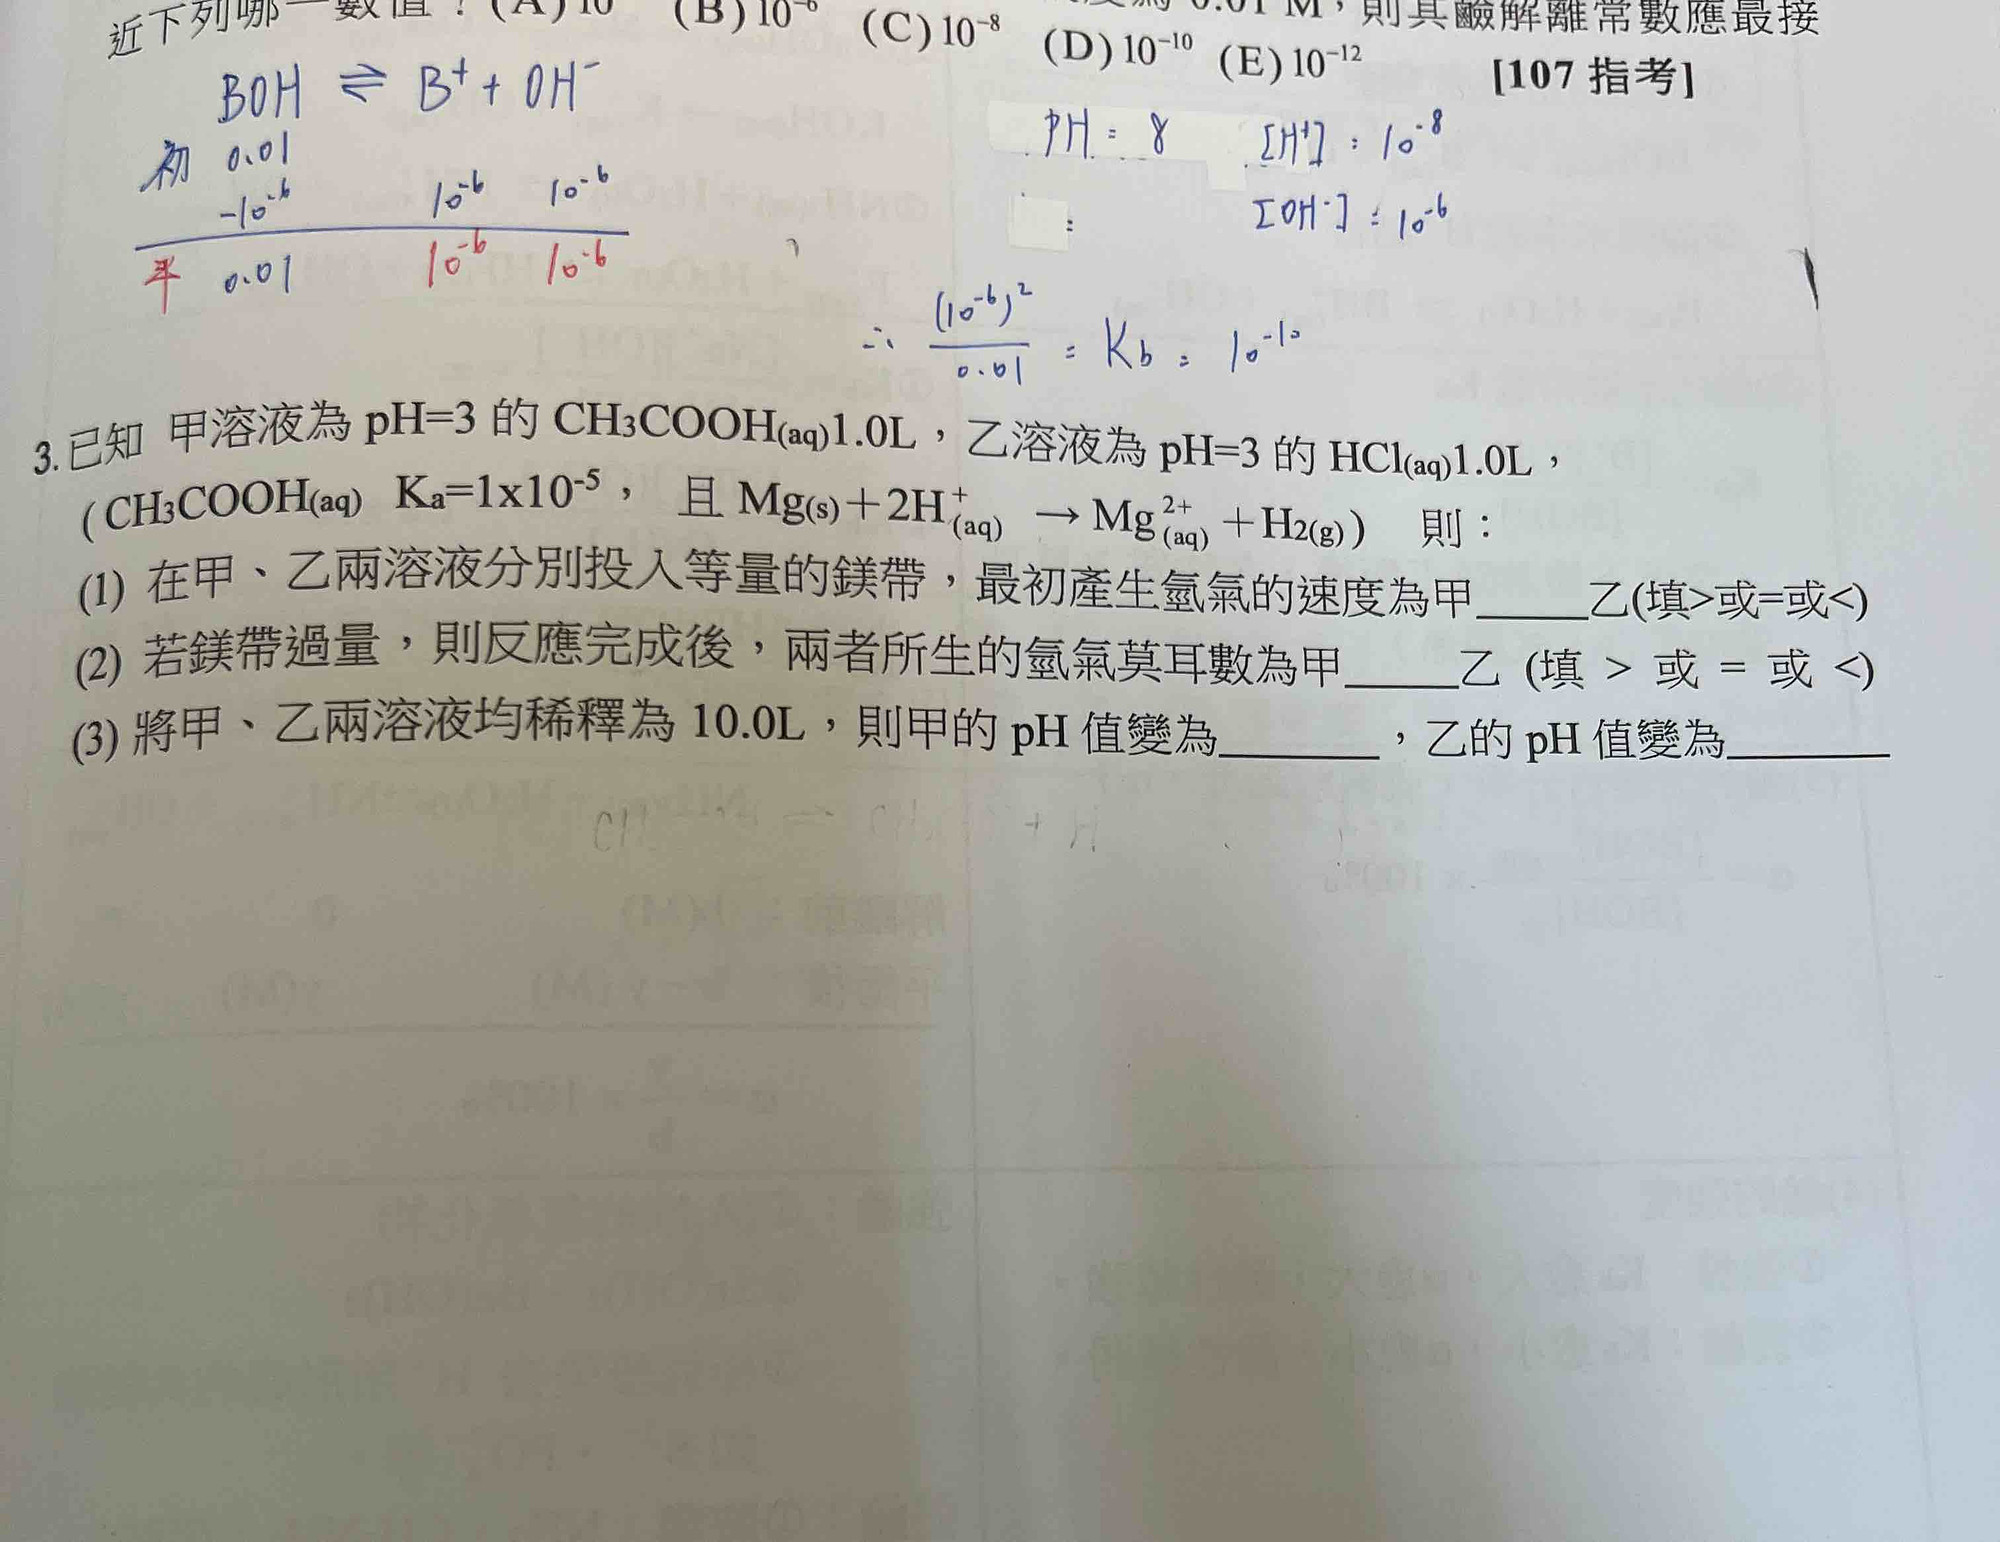 近下列哪一數值？(A)10 (B)10⁻⁶ (C)10⁻⁸ (D)10⁻¹⁰ (E)10⁻¹² [107 指考]
0.01 M，則其鹼解離常數應最接
BOH ⇌ B⁺ + OH⁻
初 0.01
-10⁻⁶ 10⁻⁶ 10⁻⁶
平 0.01 10⁻⁶ 10⁻⁶
PH = 8 [H⁺] = 10⁻⁸
= [OH⁻] = 10⁻⁶
∴ (10⁻⁶)² / 0.01 = Kb = 10⁻¹⁰
3.已知 甲溶液為 pH=3 的 CH₃COOH(aq)1.0L，乙溶液為 pH=3 的 HCl(aq)1.0L，
(CH₃COOH(aq) Ka=1x10⁻⁵， 且 Mg(s)＋2H⁺(aq) → Mg²⁺(aq) ＋H₂(g)) 則：
(1) 在甲、乙兩溶液分別投入等量的鎂帶，最初產生氫氣的速度為甲_____乙(填>或=或<)
(2) 若鎂帶過量，則反應完成後，兩者所生的氫氣莫耳數為甲_____乙 (填 > 或 = 或 <)
(3) 將甲、乙兩溶液均稀釋為 10.0L，則甲的 pH 值變為_______，乙的 pH 值變為_______